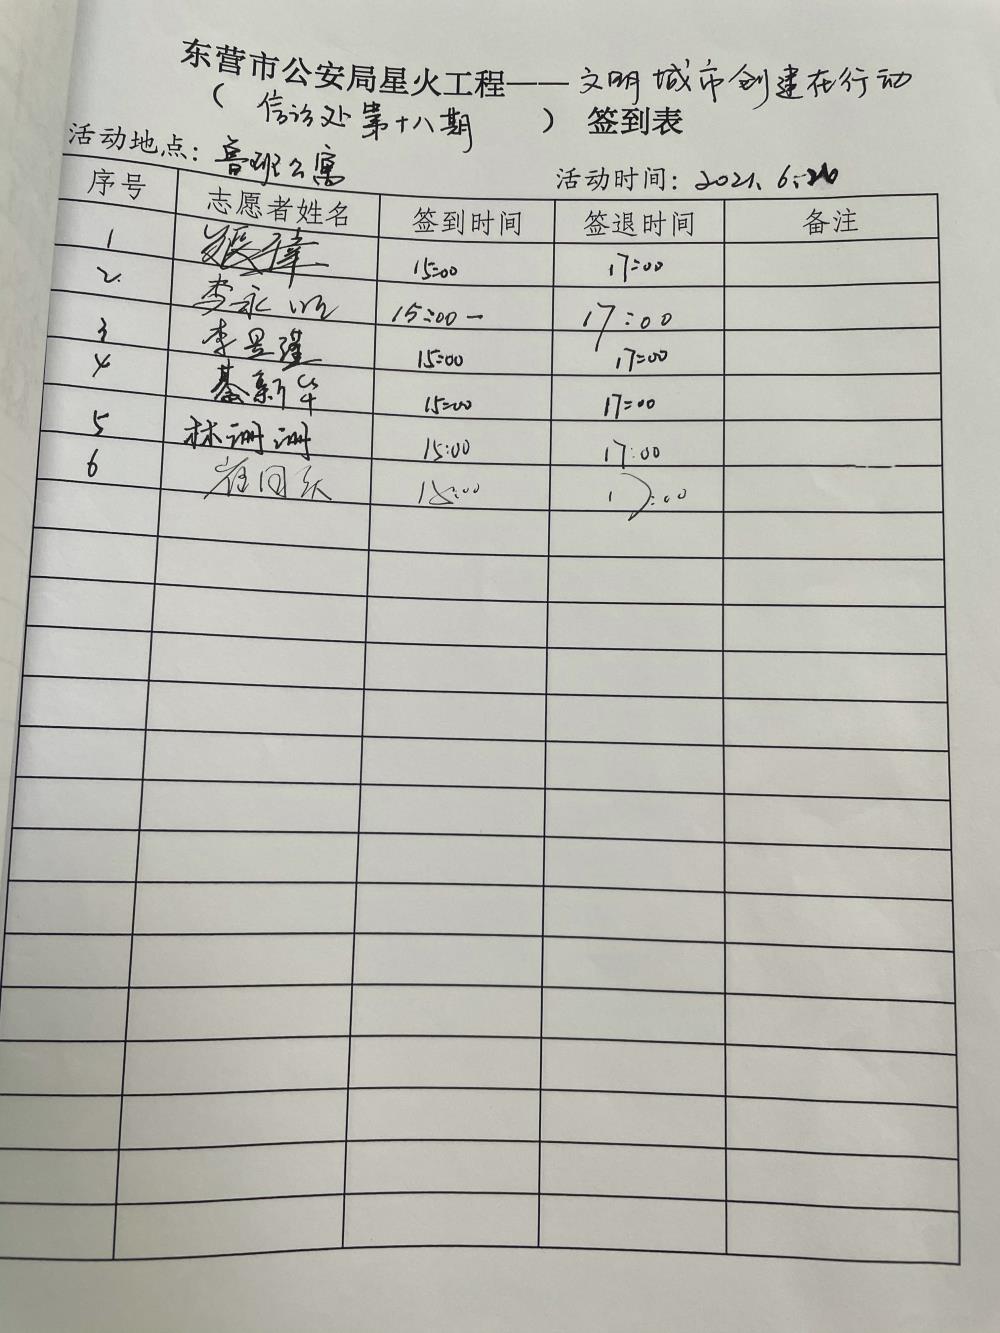 东营市公安局星火工程——文明城市创建在行动
（ 信访处第十八期 ） 签到表
活动地点：鲁班公寓 活动时间：2021.6.26
序号 志愿者姓名 签到时间 签退时间 备注
1 15:00 17:00
2. 李永明 15:00 — 17:00
3 李昱瑾 15:00 17:00
4 綦新华 15:00 17:00
5 林珊珊 15:00 17:00
6 15:00 17:00